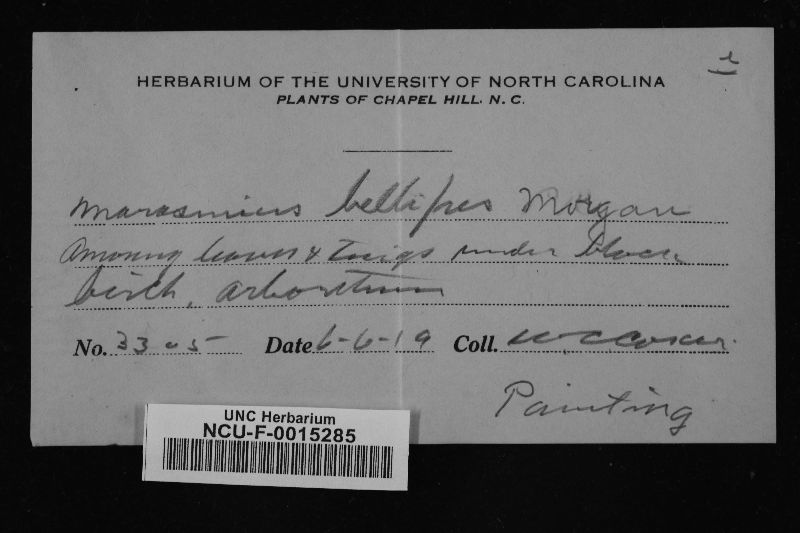 HERBARIUM OF THE UNIVERSITY OF NORTH CAROLINA
PLANTS OF CHAPEL HILL, N. C.
Marasmius bellipes Morgan
Among leaves & twigs under black
birch, arboretum
No. 3305 Date 6-6-19 Coll. W C Coker.
Painting
UNC Herbarium
NCU-F-0015285